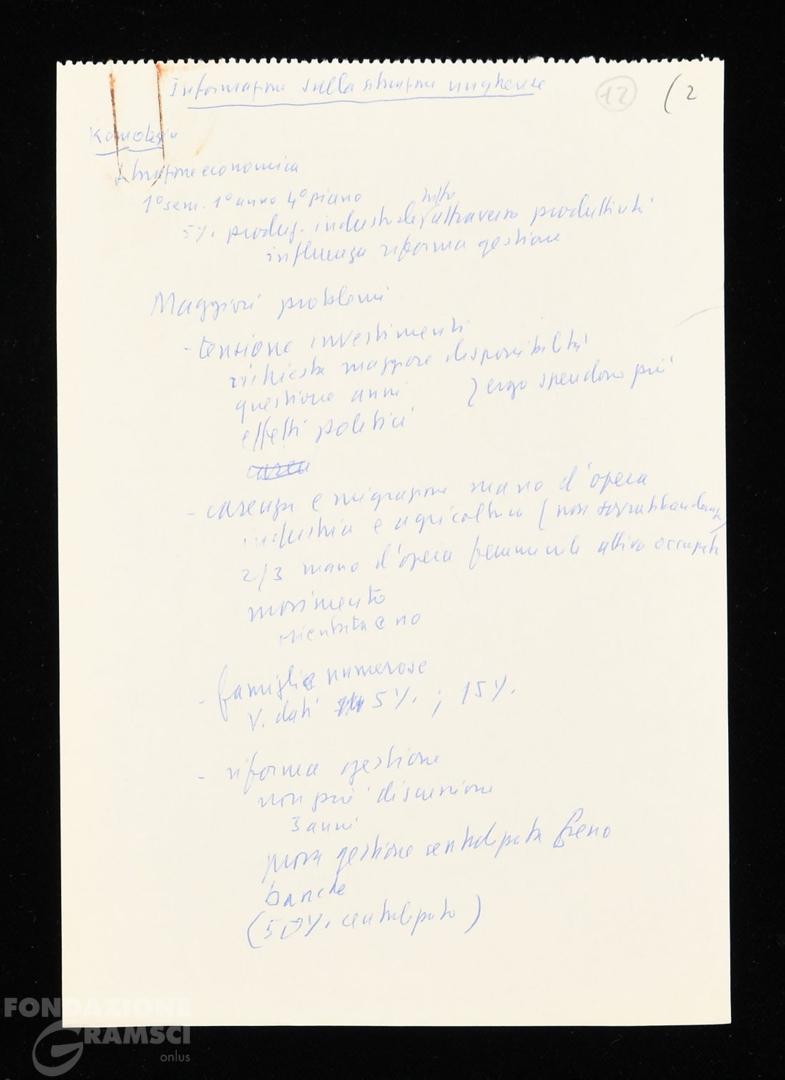 Informazione sulla situazione ungherese
12
(2
Situazione economica
1° sem. 1° anno 4° piano
tutto
5% produz. industriale attraverso produttività
influenza riforma gestione
Maggiori problemi
- tensione investimenti
richiesta maggiore disponibilità
questione anni } ergo spendono più
effetti politici
- carenza e migrazione mano d'opera
industria e agricoltura (non
2/3 mano d'opera femminile attiva occupata
movimento
- famiglie numerose
V. dati 5%; 15%.
- riforma gestione
non più discussione
3 anni
gestione centralizzata freno
banche
(50% centralizzato)
FONDAZIONE
GRAMSCI
onlus